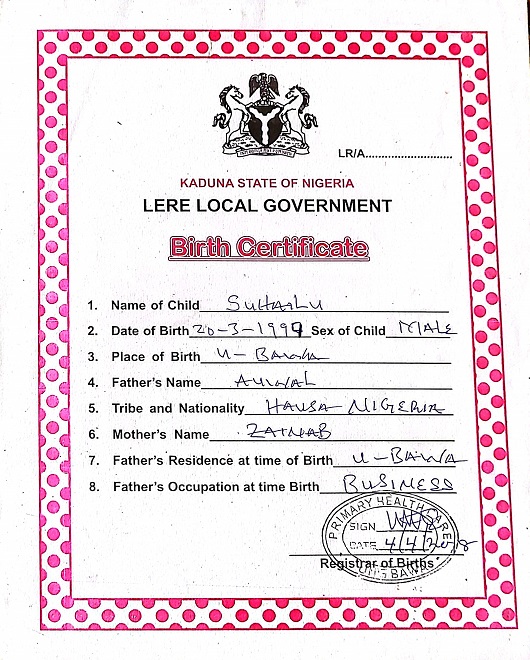 LR/A............................
KADUNA STATE OF NIGERIA
LERE LOCAL GOVERNMENT
Birth Certificate
1. Name of Child SUHAILU
2. Date of Birth 20-3-1999 Sex of Child MALE
3. Place of Birth U-BAWA
4. Father's Name AUWAL
5. Tribe and Nationality HAUSA NIGERIA
6. Mother's Name ZAINAB
7. Father's Residence at time of Birth U-BAWA
8. Father's Occupation at time Birth BUSINESS
PRIMARY HEALTH CARE
SIGN
DATE 4/4/2018
Registrar of Births
UNG BAWA